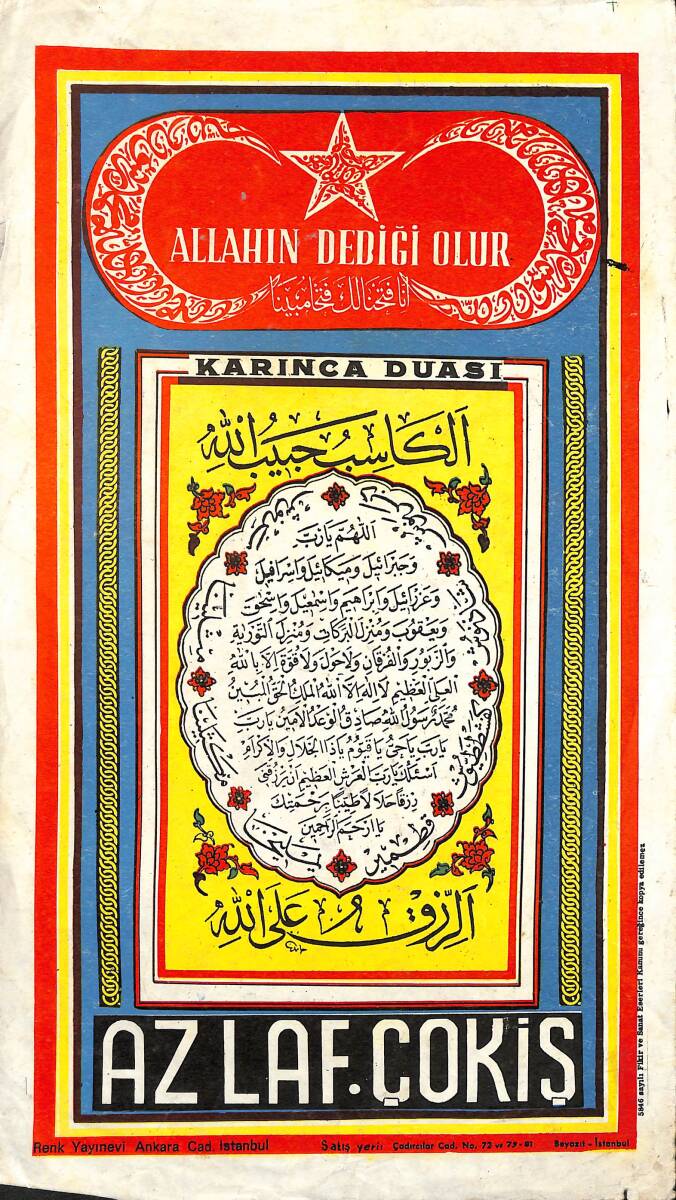 ALLAHIN DEDİĞİ OLUR
انا فتحنا لك فتحا مبينا
KARINCA DUASI
الكاسب حبيب الله
اللهم يا رب
وجبرائيل وميكائيل واسرافيل
وعزرائيل وابراهيم واسمعيل واسحق
ويعقوب ومنزل البركات ومنزل التورية
والزبور والفرقان ولا حول ولا قوة الا بالله
العلي العظيم لا اله الا الله الملك الحق المبين
محمد رسول الله صادق الوعد الامين يا رب
يا رب يا حي يا قيوم يا ذا الجلال والاكرام
اسئلك يا رب العرش العظيم ان يرزقني
رزقا حلالا طيبا برحمتك
يا ارحم الراحمين
يمليخا
مكسلينا
مثلينا
مرنوش
دبرنوش
شاذنوش
كفشططيوش
قطمير
الرزق على الله
حامد
AZ LAF. ÇOK İŞ
Renk Yayınevi Ankara Cad. İstanbul Satış yeri: Çadırcılar Cad. No. 73 ve 79-81 Beyazıt - İstanbul
5846 sayılı Fikir ve Sanat Eserleri Kanunu gereğince kopya edilemez